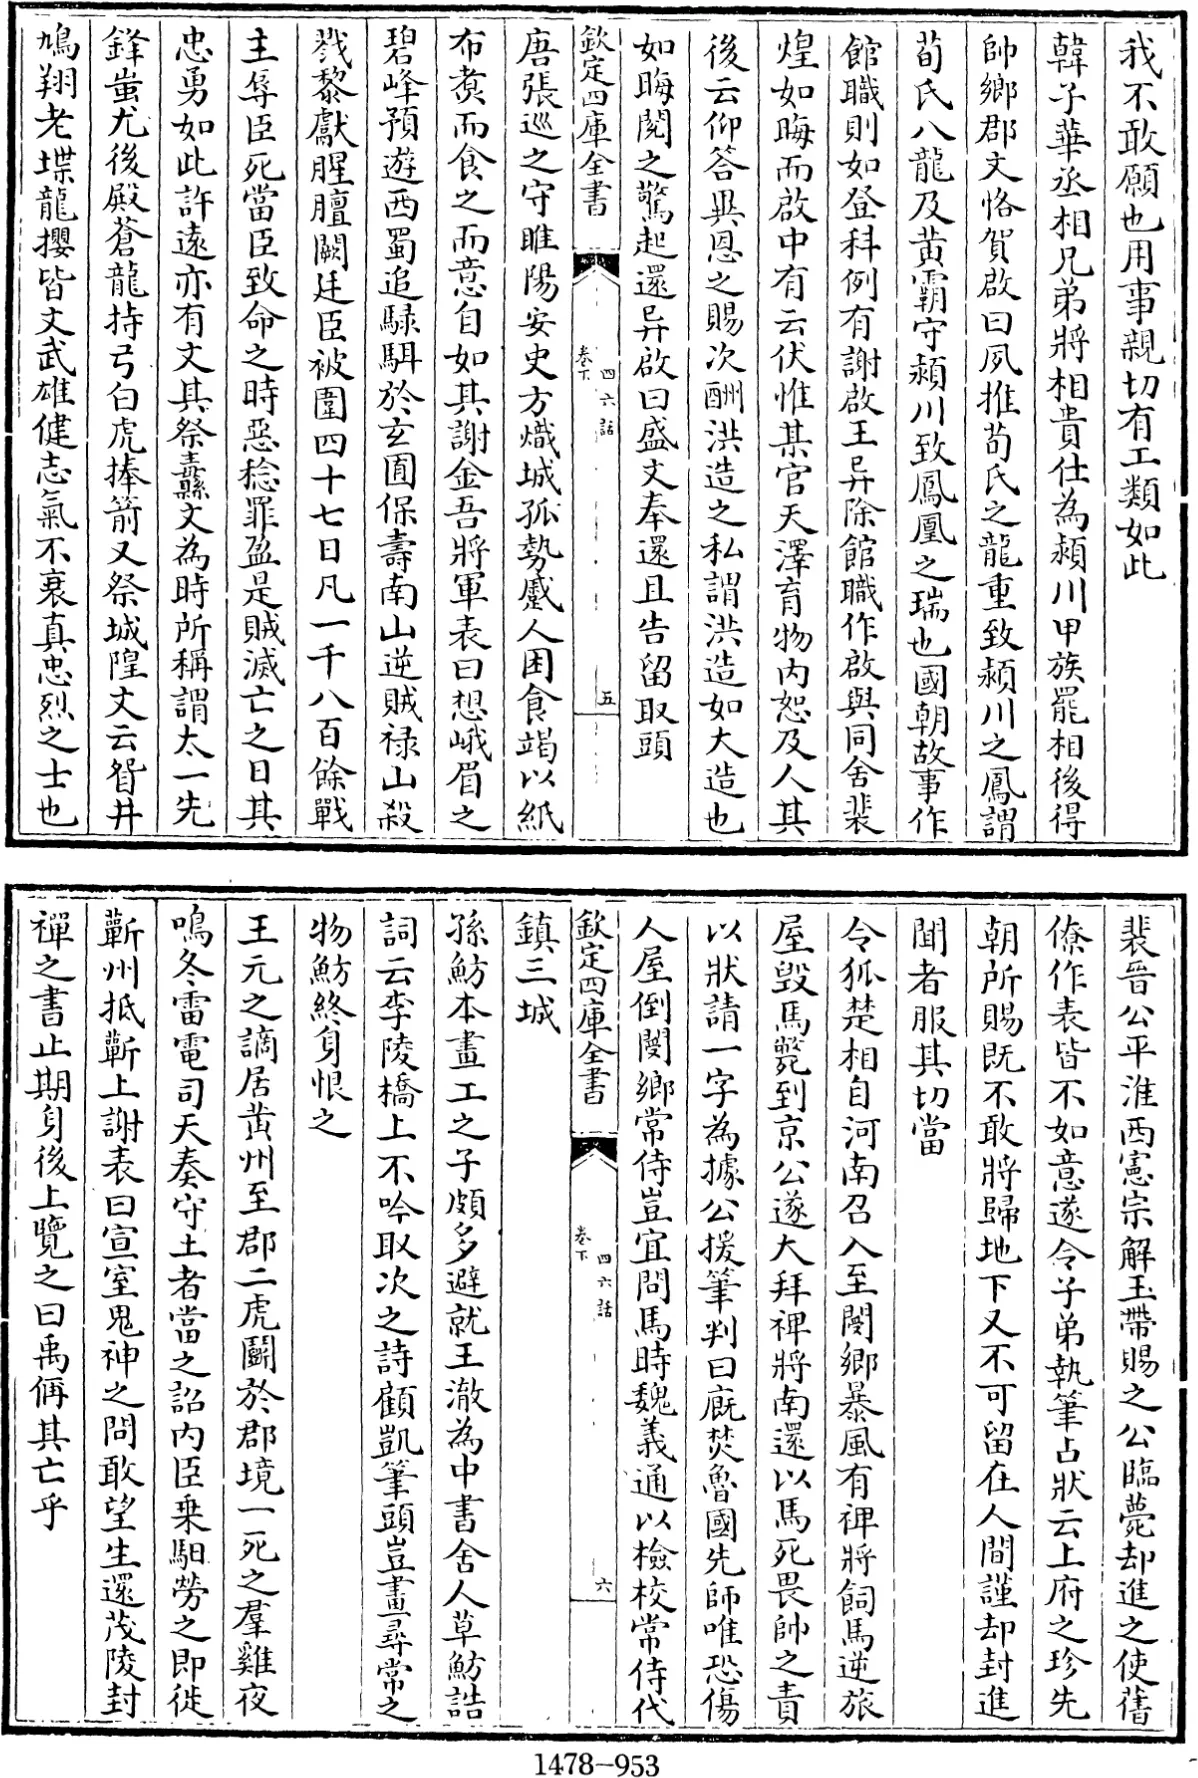 我不敢願也用事親切有工類如此
韓子華丞相兄弟將相貴仕為潁川甲族罷相後得
帥鄉郡文恪賀啟曰夙推荀氏之龍重致潁川之鳳謂
荀氏八龍及黄霸守潁川致鳳凰之瑞也國朝故事作
館職則如登科例有謝啟王异除館職作啟與同舍裴
煌如晦而啟中有云伏惟某官天澤育物内恕及人其
後云仰答異恩之賜次酬洪造之私謂洪造如大造也
如晦閱之驚起還异啟曰盛文奉還且告留取頭
欽定四庫全書
四六話
卷下
五
唐張巡之守睢陽安史方熾城孤勢蹙人困食竭以紙
布煑而食之而意自如其謝金吾將軍表曰想峨眉之
碧峰預遊西蜀追騄駬於玄圃保壽南山逆賊祿山殺
戮黎獻腥膻闕廷臣被圍四十七日凡一千八百餘戰
主辱臣死當臣致命之時惡稔罪盈是賊滅亡之日其
忠勇如此許遠亦有文其祭纛文為時所稱謂太一先
鋒蚩尤後殿蒼龍持弓白虎捧箭又祭城隍文云眢井
鳩翔老堞龍攖皆文武雄健志氣不衰真忠烈之士也
裴晉公平淮西憲宗解玉帶賜之公臨薨却進之使舊
僚作表皆不如意遂令子弟執筆占狀云上府之珍先
朝所賜既不敢將歸地下又不可留在人間謹却封進
聞者服其切當
令狐楚相自河南召入至閿鄉暴風有裨將飼馬逆旅
屋毀馬斃到京公遂大拜裨將南還以馬死畏帥之責
以狀請一字為據公援筆判曰厩焚魯國先師唯恐傷
人屋倒閿鄉常侍豈宜問馬時魏義通以檢校常侍代
欽定四庫全書
四六話
卷下
六
鎮三城
孫魴本畫工之子頗多避就王澈為中書舍人草魴誥
詞云李陵橋上不吟取次之詩顧凱筆頭豈畫尋常之
物魴終身恨之
王元之謫居黄州至郡二虎鬭於郡境一死之羣雞夜
鳴冬雷電司天奏守土者當之詔内臣乗馹勞之即徙
蘄州抵蘄上謝表曰宣室鬼神之問敢望生還茂陵封
禪之書止期身後上覽之曰禹偁其亡乎
1478-953